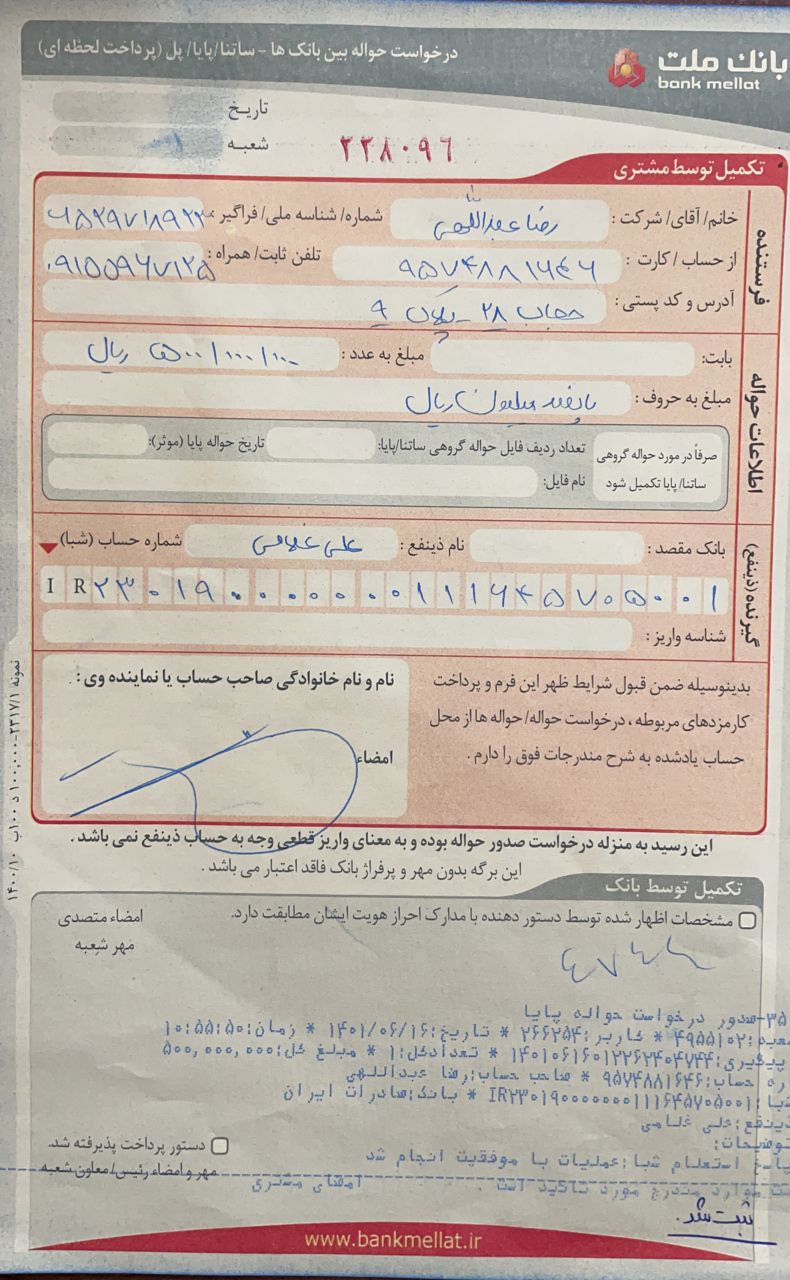 بانک ملت
bank mellat
درخواست حواله بین بانک ها - ساتنا/پایا/پل (پرداخت لحظه ای)
تاریخ
شعبه
۲۲۸۰۹۶
تکمیل توسط مشتری
فرستنده
خانم/آقای/شرکت: رضا عبداللهی شماره/شناسه ملی/فراگیر
از حساب/کارت: ۹۵۷۴۸۸۱۶۴۶ تلفن ثابت/همراه: ۰۹۱۵۵۹۶۷۱۲۵
آدرس و کد پستی: حجاب ۲۸ - پلاک ۹
اطلاعات حواله
بابت: مبلغ به عدد: ۵۰۰/۰۰۰/۰۰۰ ریال
مبلغ به حروف: پانصد میلیون ریال
صرفاً در مورد حواله گروهی ساتنا/پایا تکمیل شود
تعداد ردیف فایل حواله گروهی ساتنا/پایا: تاریخ حواله پایا (موثر):
نام فایل:
گیرنده (ذینفع)
بانک مقصد: نام ذینفع: علی غلامی شماره حساب (شبا)
IR۲۳۰۱۹۰۰۰۰۰۰۰۱۱۱۶۴۵۷۰۵۰۰۱
شناسه واریز:
بدینوسیله ضمن قبول شرایط ظهر این فرم و پرداخت
کارمزدهای مربوطه، درخواست حواله/حواله ها از محل
حساب یادشده به شرح مندرجات فوق را دارم.
نام و نام خانوادگی صاحب حساب یا نماینده وی:
امضاء
این رسید به منزله درخواست صدور حواله بوده و به معنای واریز قطعی وجه به حساب ذینفع نمی باشد.
این برگه بدون مهر و پرفراژ بانک فاقد اعتبار می باشد.
تکمیل توسط بانک
مشخصات اظهار شده توسط دستور دهنده با مدارک احراز هویت ایشان مطابقت دارد.
امضاء متصدی
مهر شعبه
۳۵-صدور درخواست حواله پایا
۴۹۵۵۱۰۲ * کاربر:۲۶۶۲۵۴ * تاریخ:۱۴۰۱/۰۶/۱۶ * زمان:۱۰:۵۵:۵۰
پیگیری:۱۴۰۱۰۶۱۶۰۱۲۲۶۲۴۰۴۷۴۴ * تعدادکل:۱ * مبلغ کل:۵۰۰,۰۰۰,۰۰۰
حساب:۹۵۷۴۸۸۱۶۴۶ * صاحب حساب:رضا عبداللهی
IR۲۳۰۱۹۰۰۰۰۰۰۰۱۱۱۶۴۵۷۰۵۰۰۱ * بانک:صادرات ایران
ذینفع:علی غلامی
توضیحات:
پاسخ استعلام شبا:عملیات با موفقیت انجام شد
موارد مندرج مورد تاکید است. امضای مشتری
دستور پرداخت پذیرفته شد.
مهر و امضاء رئیس/معاون شعبه
ثبت شد.
www.bankmellat.ir